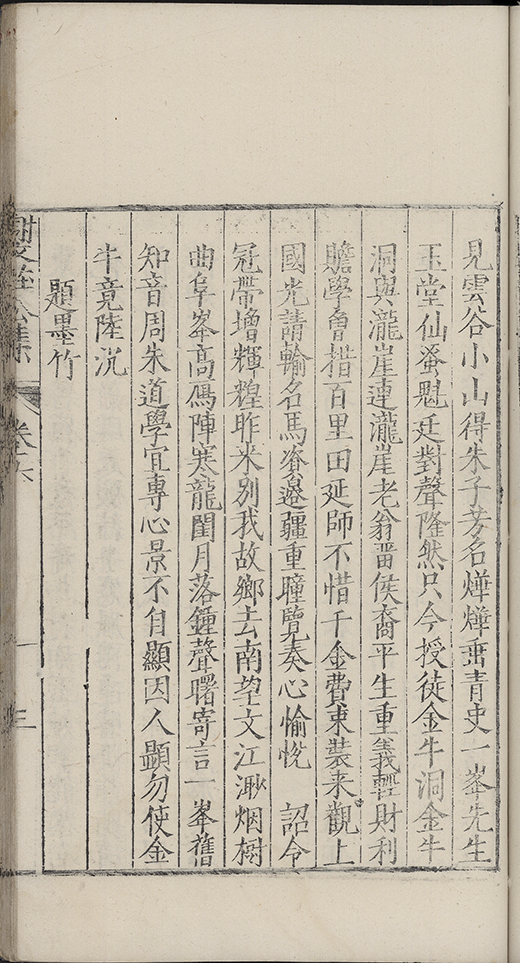 見雲谷小山得朱子芳名燁燁垂青史一峯先生
玉堂仙蚤魁廷對聲隆然只今授徒金牛洞金牛
洞與瀧崖連瀧崖老翁畨侯裔平生重義輕財利
贍學曾措百里田延師不惜千金費束裝来觀上
國光請輸名馬資邊疆重瞳覽奏心愉恱 詔令
冠帶增輝煌昨来别我故鄉去南望文江渺烟樹
曲阜峯高鴈陣寒龍閨月落鐘聲曙寄言一峯舊
知音周朱道學宜專心景不自顯因人顯勿使金
牛竟陸沉
題墨竹
卷十六
三